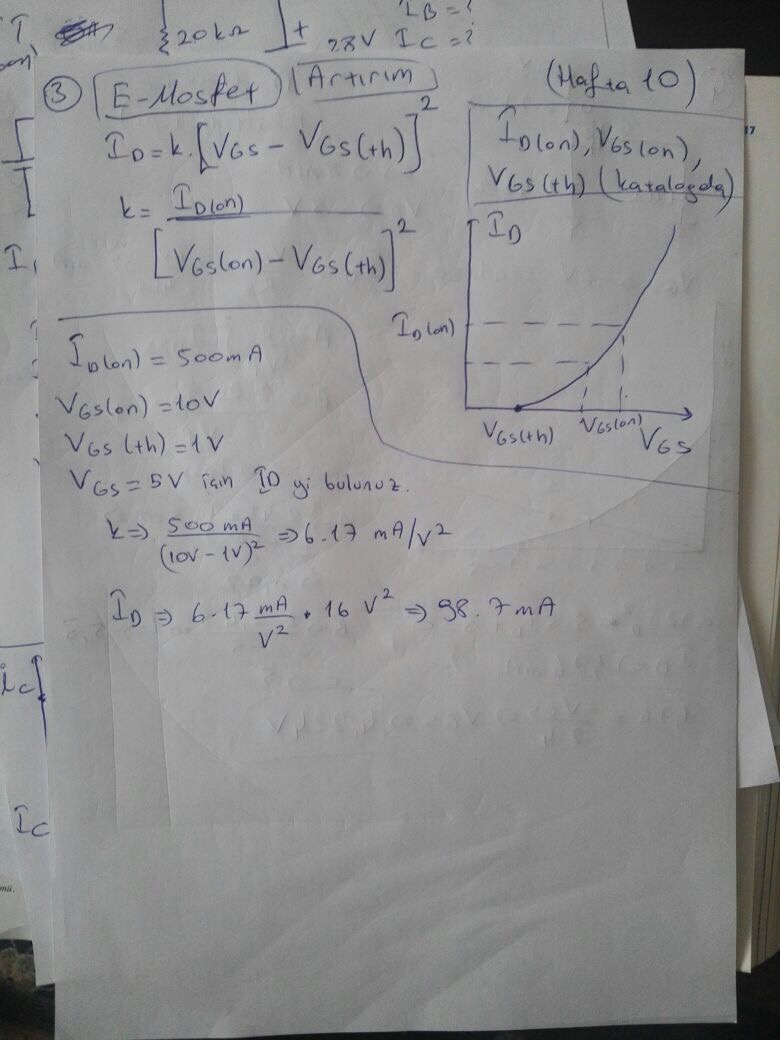 20kΩ
28V
IB = ?
IC = ?
③ E-Mosfet Artırım (Hafta 10)
ID = k.[VGS - VGS(th)]²
k = ID(on) / [VGS(on) - VGS(th)]²
ID(on), VGS(on),
VGS(th) (katalogda)
ID
ID(on)
VGS(th) VGS(on) VGS
ID(on) = 500mA
VGS(on) = 10V
VGS(th) = 1V
VGS = 5V için ID yi bulunuz.
k ⇒ 500 mA / (10V - 1V)² ⇒ 6.17 mA/V²
ID ⇒ 6.17 mA/V² • 16 V² ⇒ 98.7mA
IC